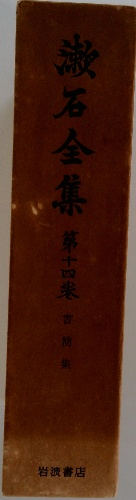 漱石全集
第十四卷
書簡集
岩波書店